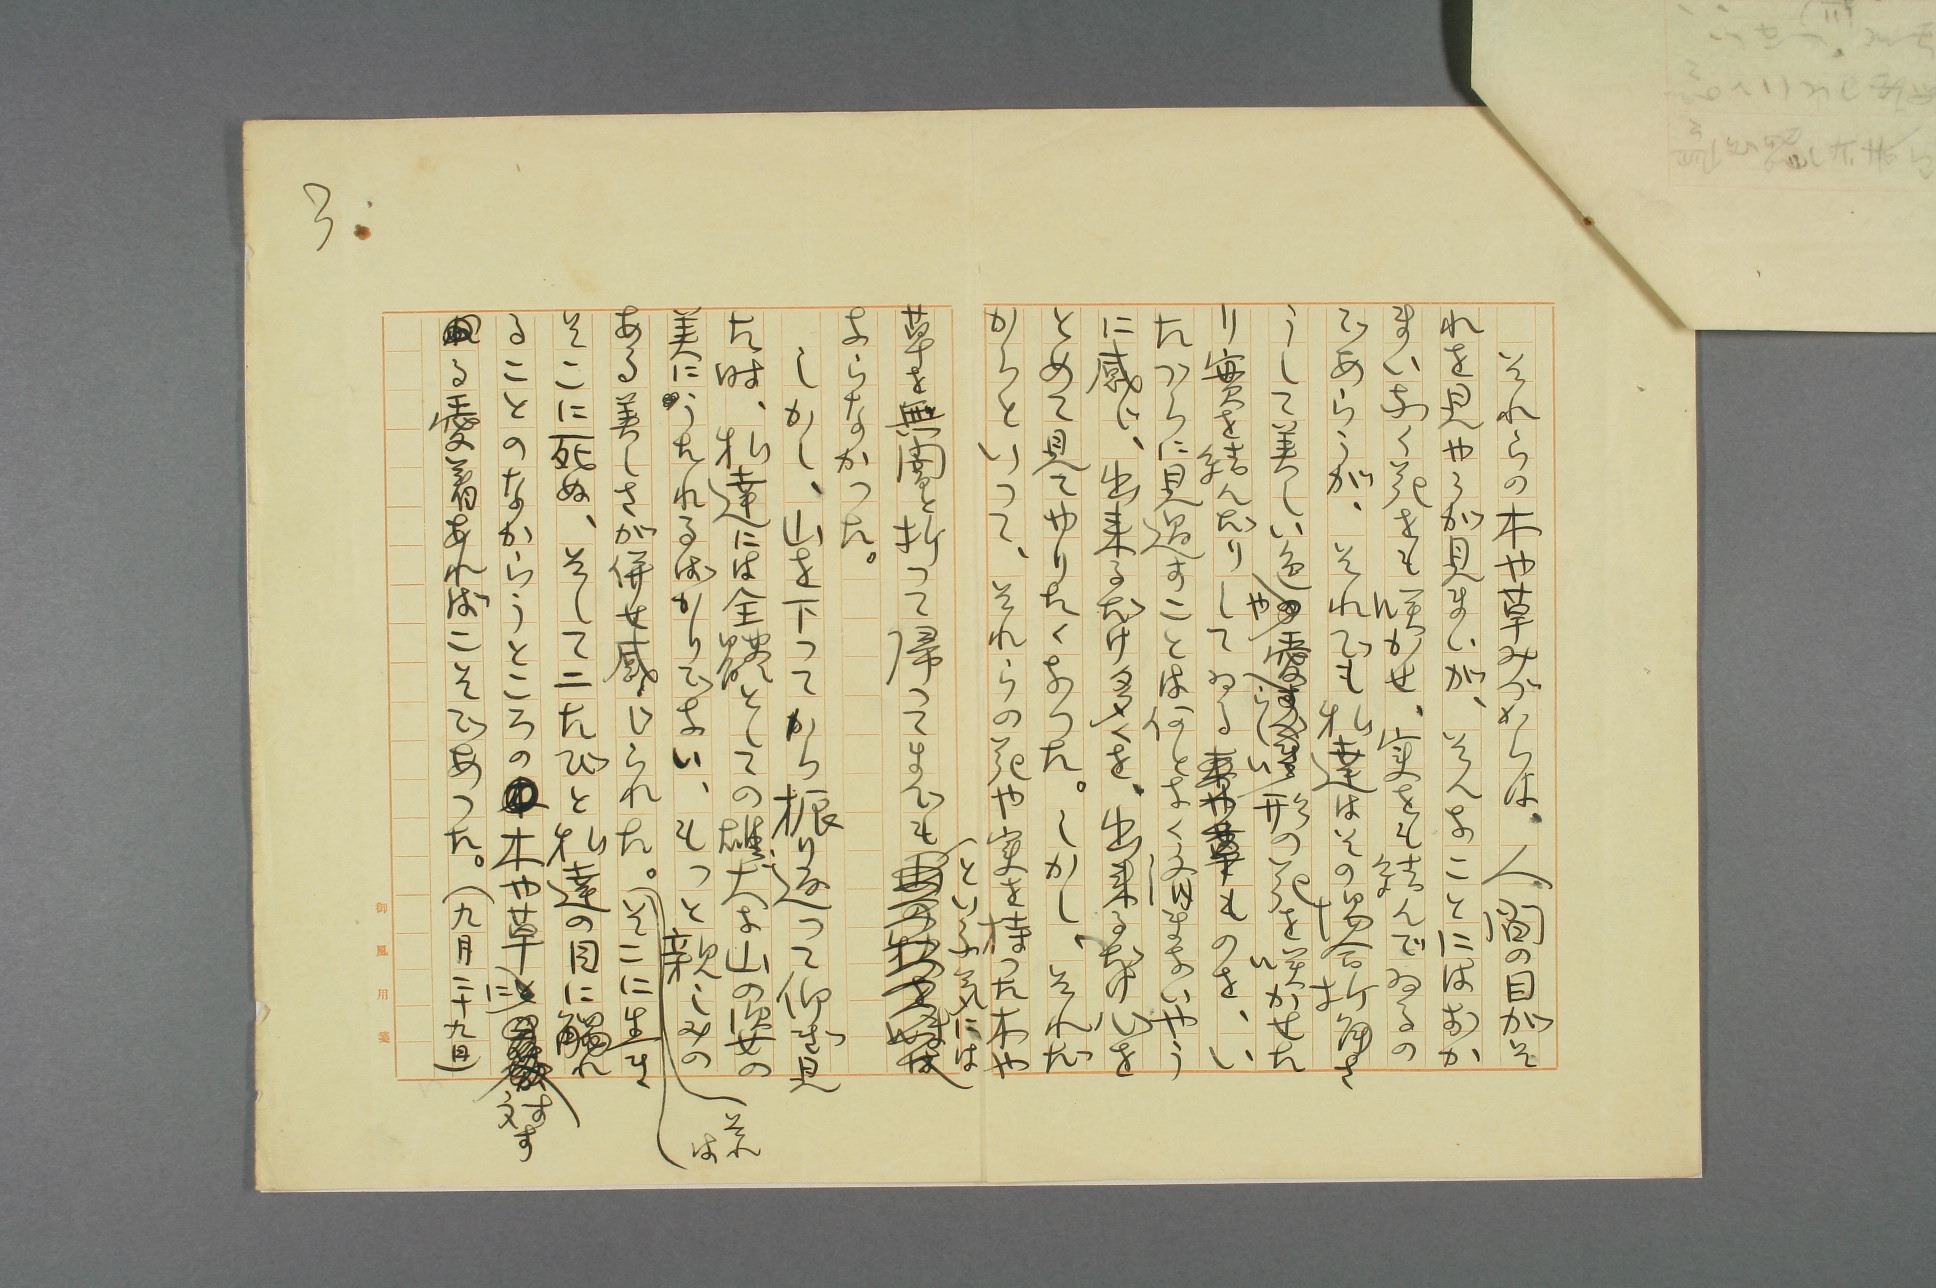 それらの木や草みづからは、人間の目がそ
れを見やうが見まいが、そんなことにはおか
まいなく花をも咲かせ、実をも結んでゐるの
であらうが、それでも私達はその場合
うして美しい色や愛らしい形の花を咲かせた
り實を結んだりしてゐるものを、い
たづらに見過すことは何となく済まないやう
に感じ、出来るだけ多くを、出来るだけ心を
とめて見てやりたくなつた。しかし、それだ
からといつて、それらの花や実を持つた木や
草を無闇と折つて帰つてまでもといふ気には
ならなかつた。
しかし、山を下つてから振り返つて仰ぎ見
た時、私達には全體としての雄大な山の姿の
美にうたれるばかりでない、もつと親しみの
ある美しさが併せ感じられた。それは
そこに生き
そこに死ぬ、そして二たびと私達の目に觸れ
ることのなからうところの木や草に対す
る愛着あればこそであつた。(九月二十九日)
3
御風用箋